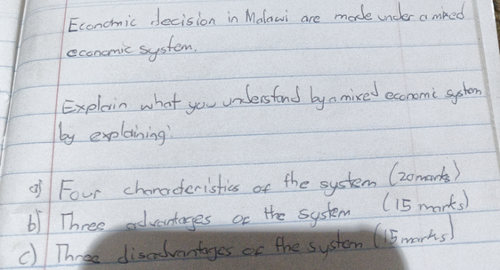 Economic decision in Malawi are made under a mixed
economic system.
Explain what you understand by a mixed economic system
by explaining:
a) Four characteristics of the system (20 marks)
b) Three advantages of the system (15 marks)
c) Three disadvantages of the system (15 marks)